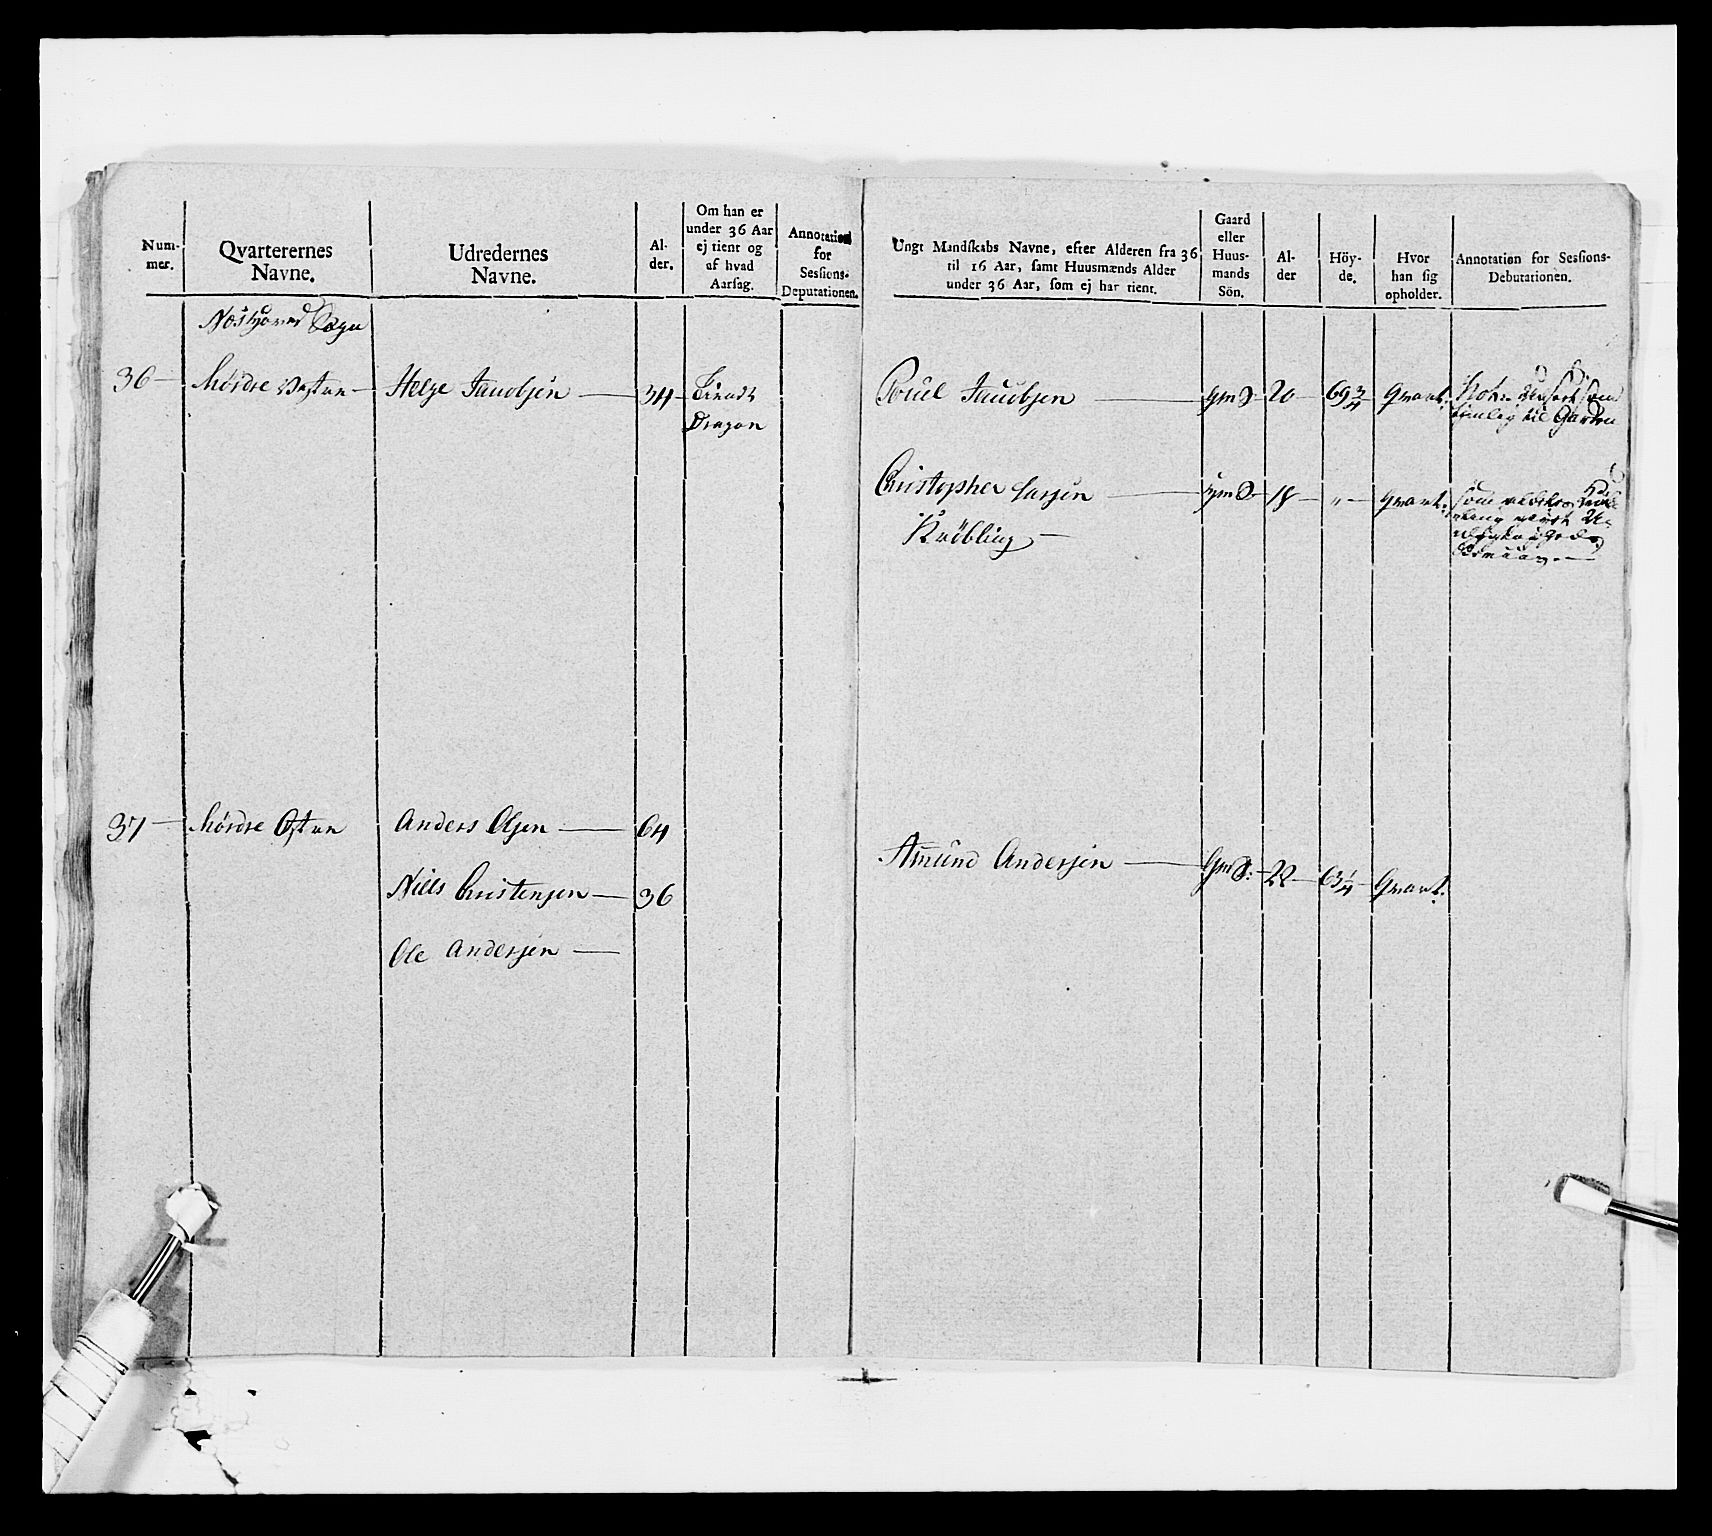 Num-
mer.
Qvarterernes
Navne.
Udredernes
Navne.
Al-
der.
Om han er
under 36 Aar
ej tient og
af hvad
Aarsag.
Annotation
for
Sessions-
Deputationen.
Ungt Mandskabs Navne, efter Alderen fra 36
til 16 Aar, samt Huusmænds Alder
under 36 Aar, som ej har tient.
Gaard
eller
Huus-
mands
Sön.
Al-
der
Höy-
de.
Hvor
han sig
opholder.
Annotation for Sessions-
Debutationen.
Sogn
36 Mørdre Vestre Helge Jacobsen 34
Dragon
Poul Jacobsen GmS 20 69 3/4 Qvart:
til Garden
Christopher Larsen GmS 18 " Qvart:
Krøbling
37 Mørdre Østre Anders Olsen 64
Amund Andersen GmS: 22 63 1/4 Qvart:
Niels Christensen 36
Ole Andersen